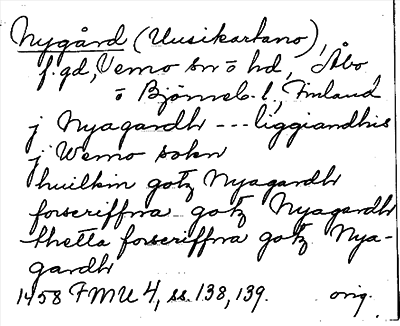 Nygård (Uusikartano),
f.gd, Vemo sn o hd, Åbo
o Björneb. l., Finland
j Nyagardh --- liggiandhis
j Wemo sokn
huilkin gotz Nyagardh
forscriffna gotz Nyagardh
thetta forscriffna gotz Nya-
gardh
1458 FMU 4, ss. 138, 139. orig.